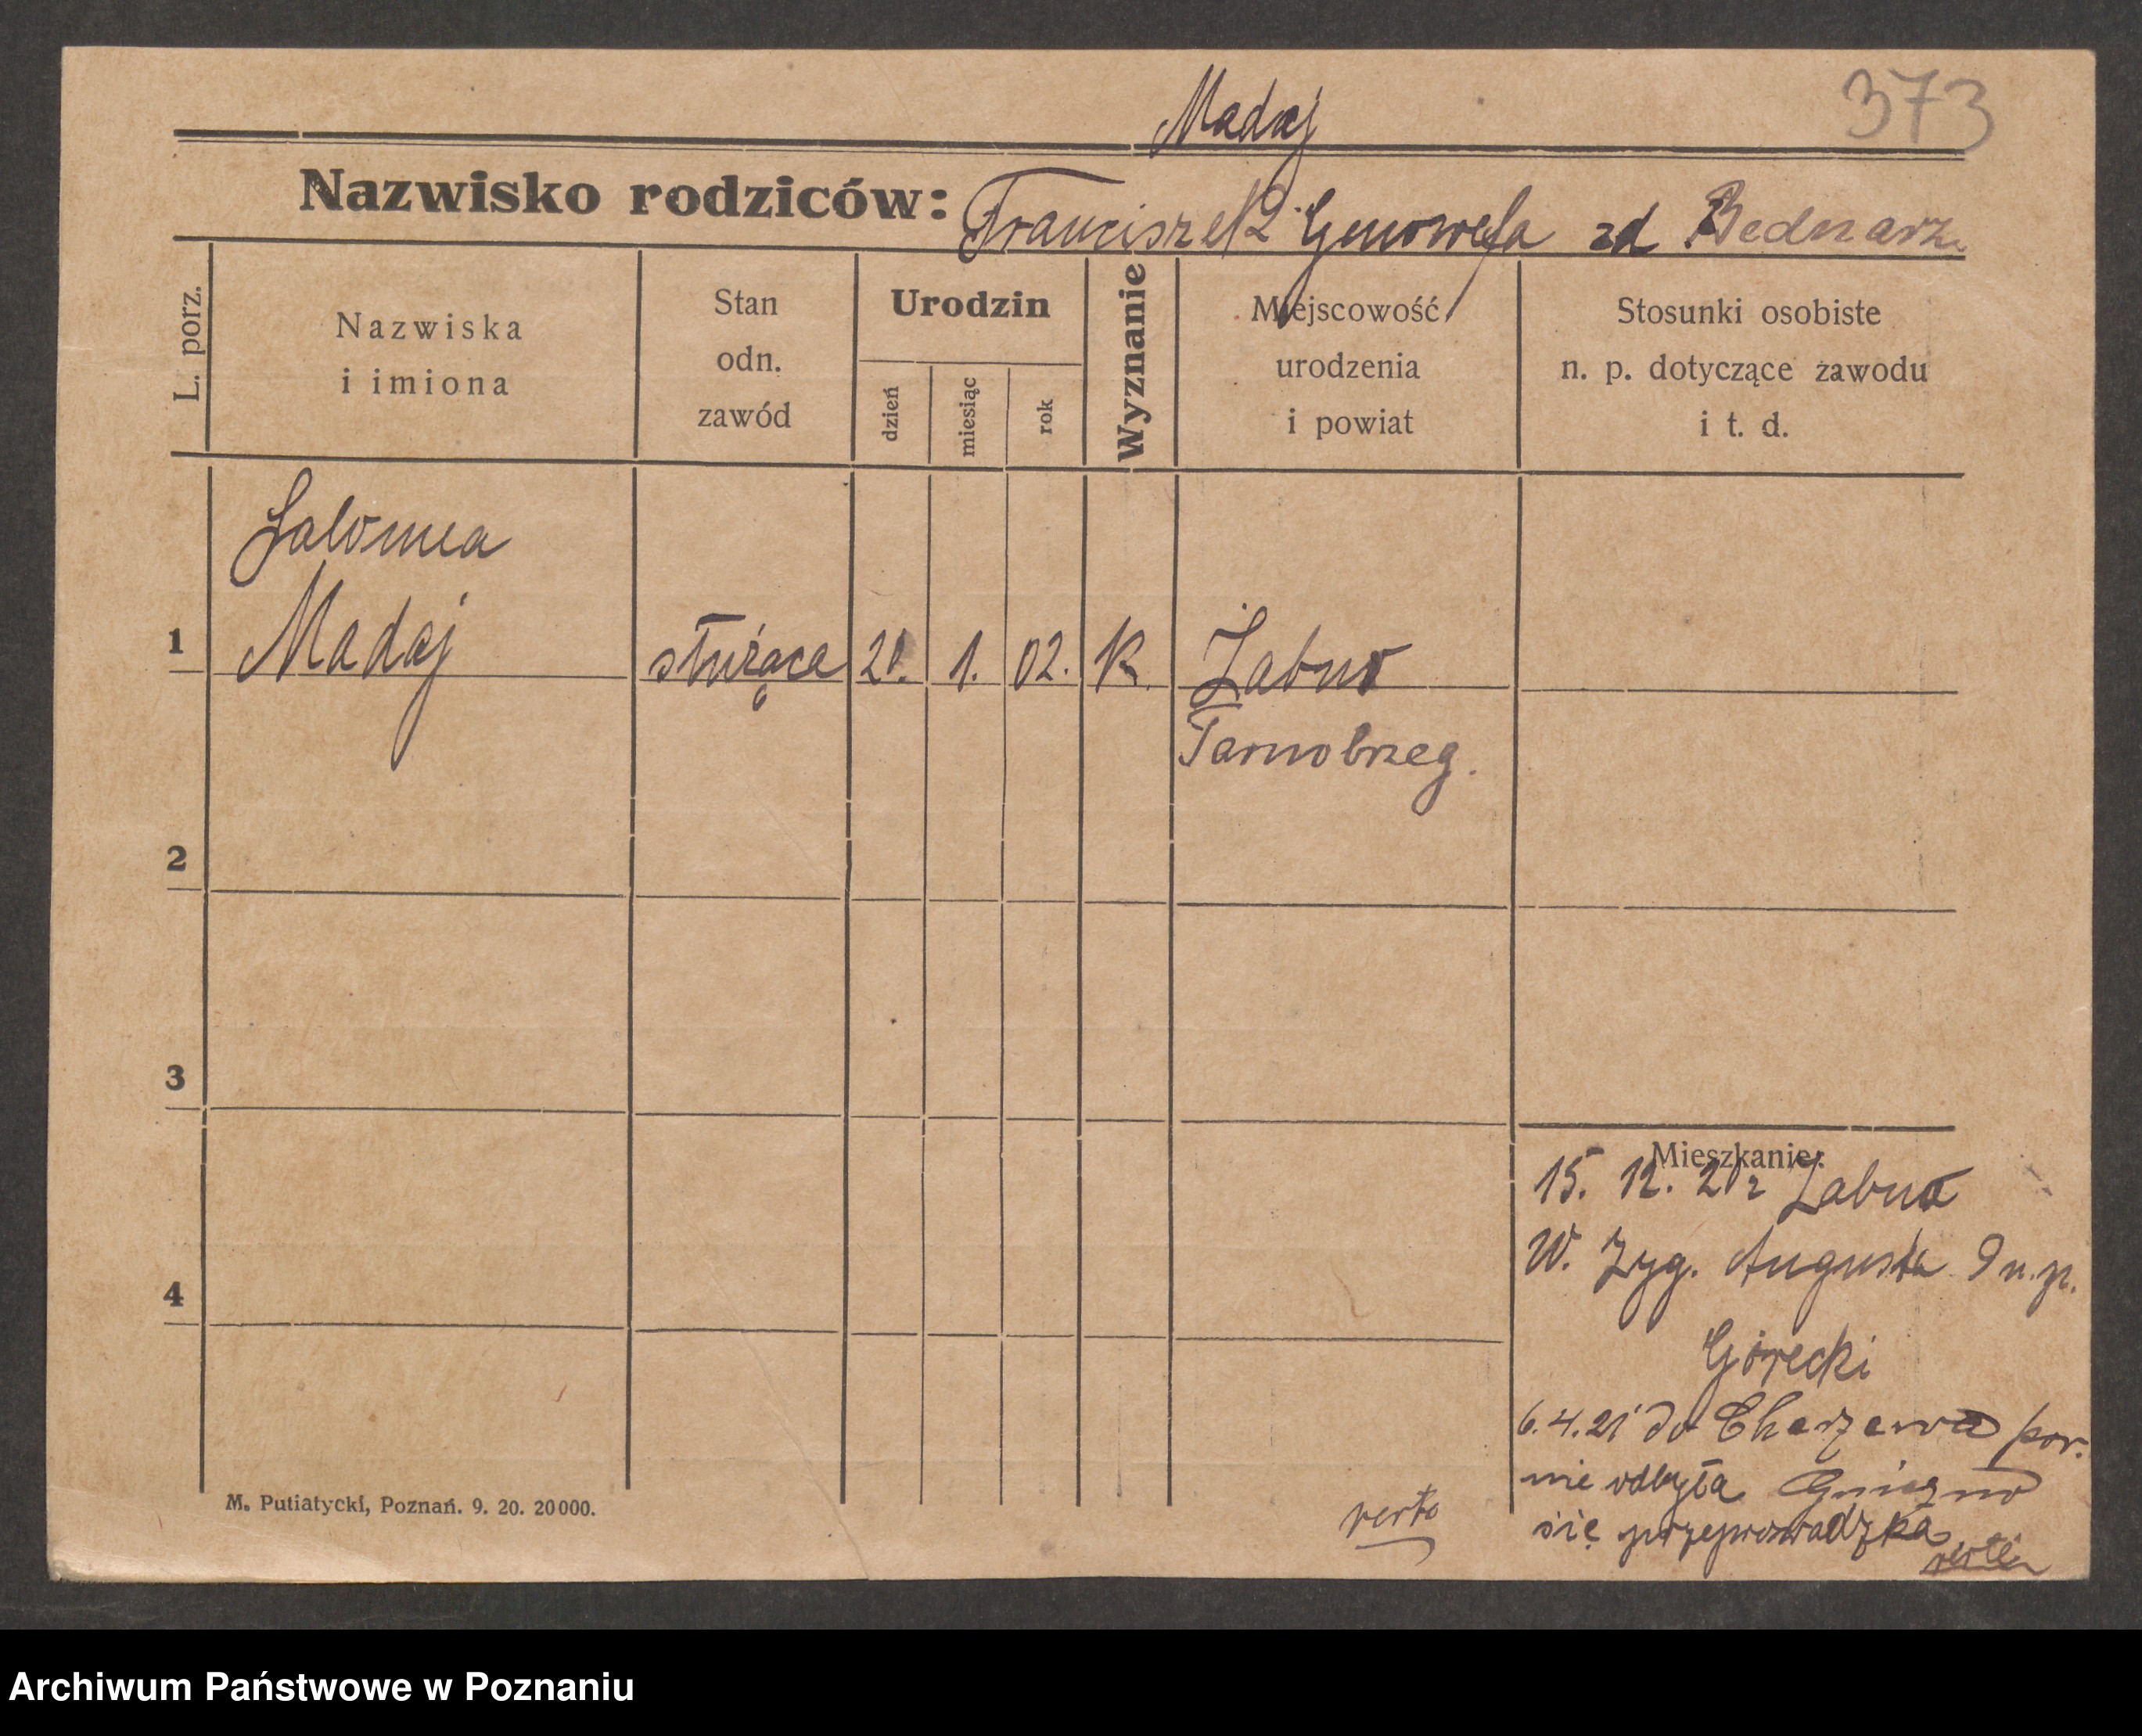 373
Madaj
Nazwisko rodziców: Franciszek Genowefa zd. Bednarz
L. porz.
Nazwiska
i imiona
Stan
odn.
zawód
Urodzin
dzień
miesiąc
rok
Wyznanie
Miejscowość
urodzenia
i powiat
Stosunki osobiste
n. p. dotyczące zawodu
i t. d.
Salomea
1 Madaj służąca 20. 1. 02. K. Żabno
Tarnobrzeg.
2
3
4
Mieszkanie:
15. 12. 20 r Żabno
W. Zyg. Augusta 9 u. p.
Górecki
6.4.21 do pow.
nie odbyła Gniezno
się przeprowadzka
verte
verte
M. Putiatycki, Poznań. 9. 20. 20000.
Archiwum Państwowe w Poznaniu